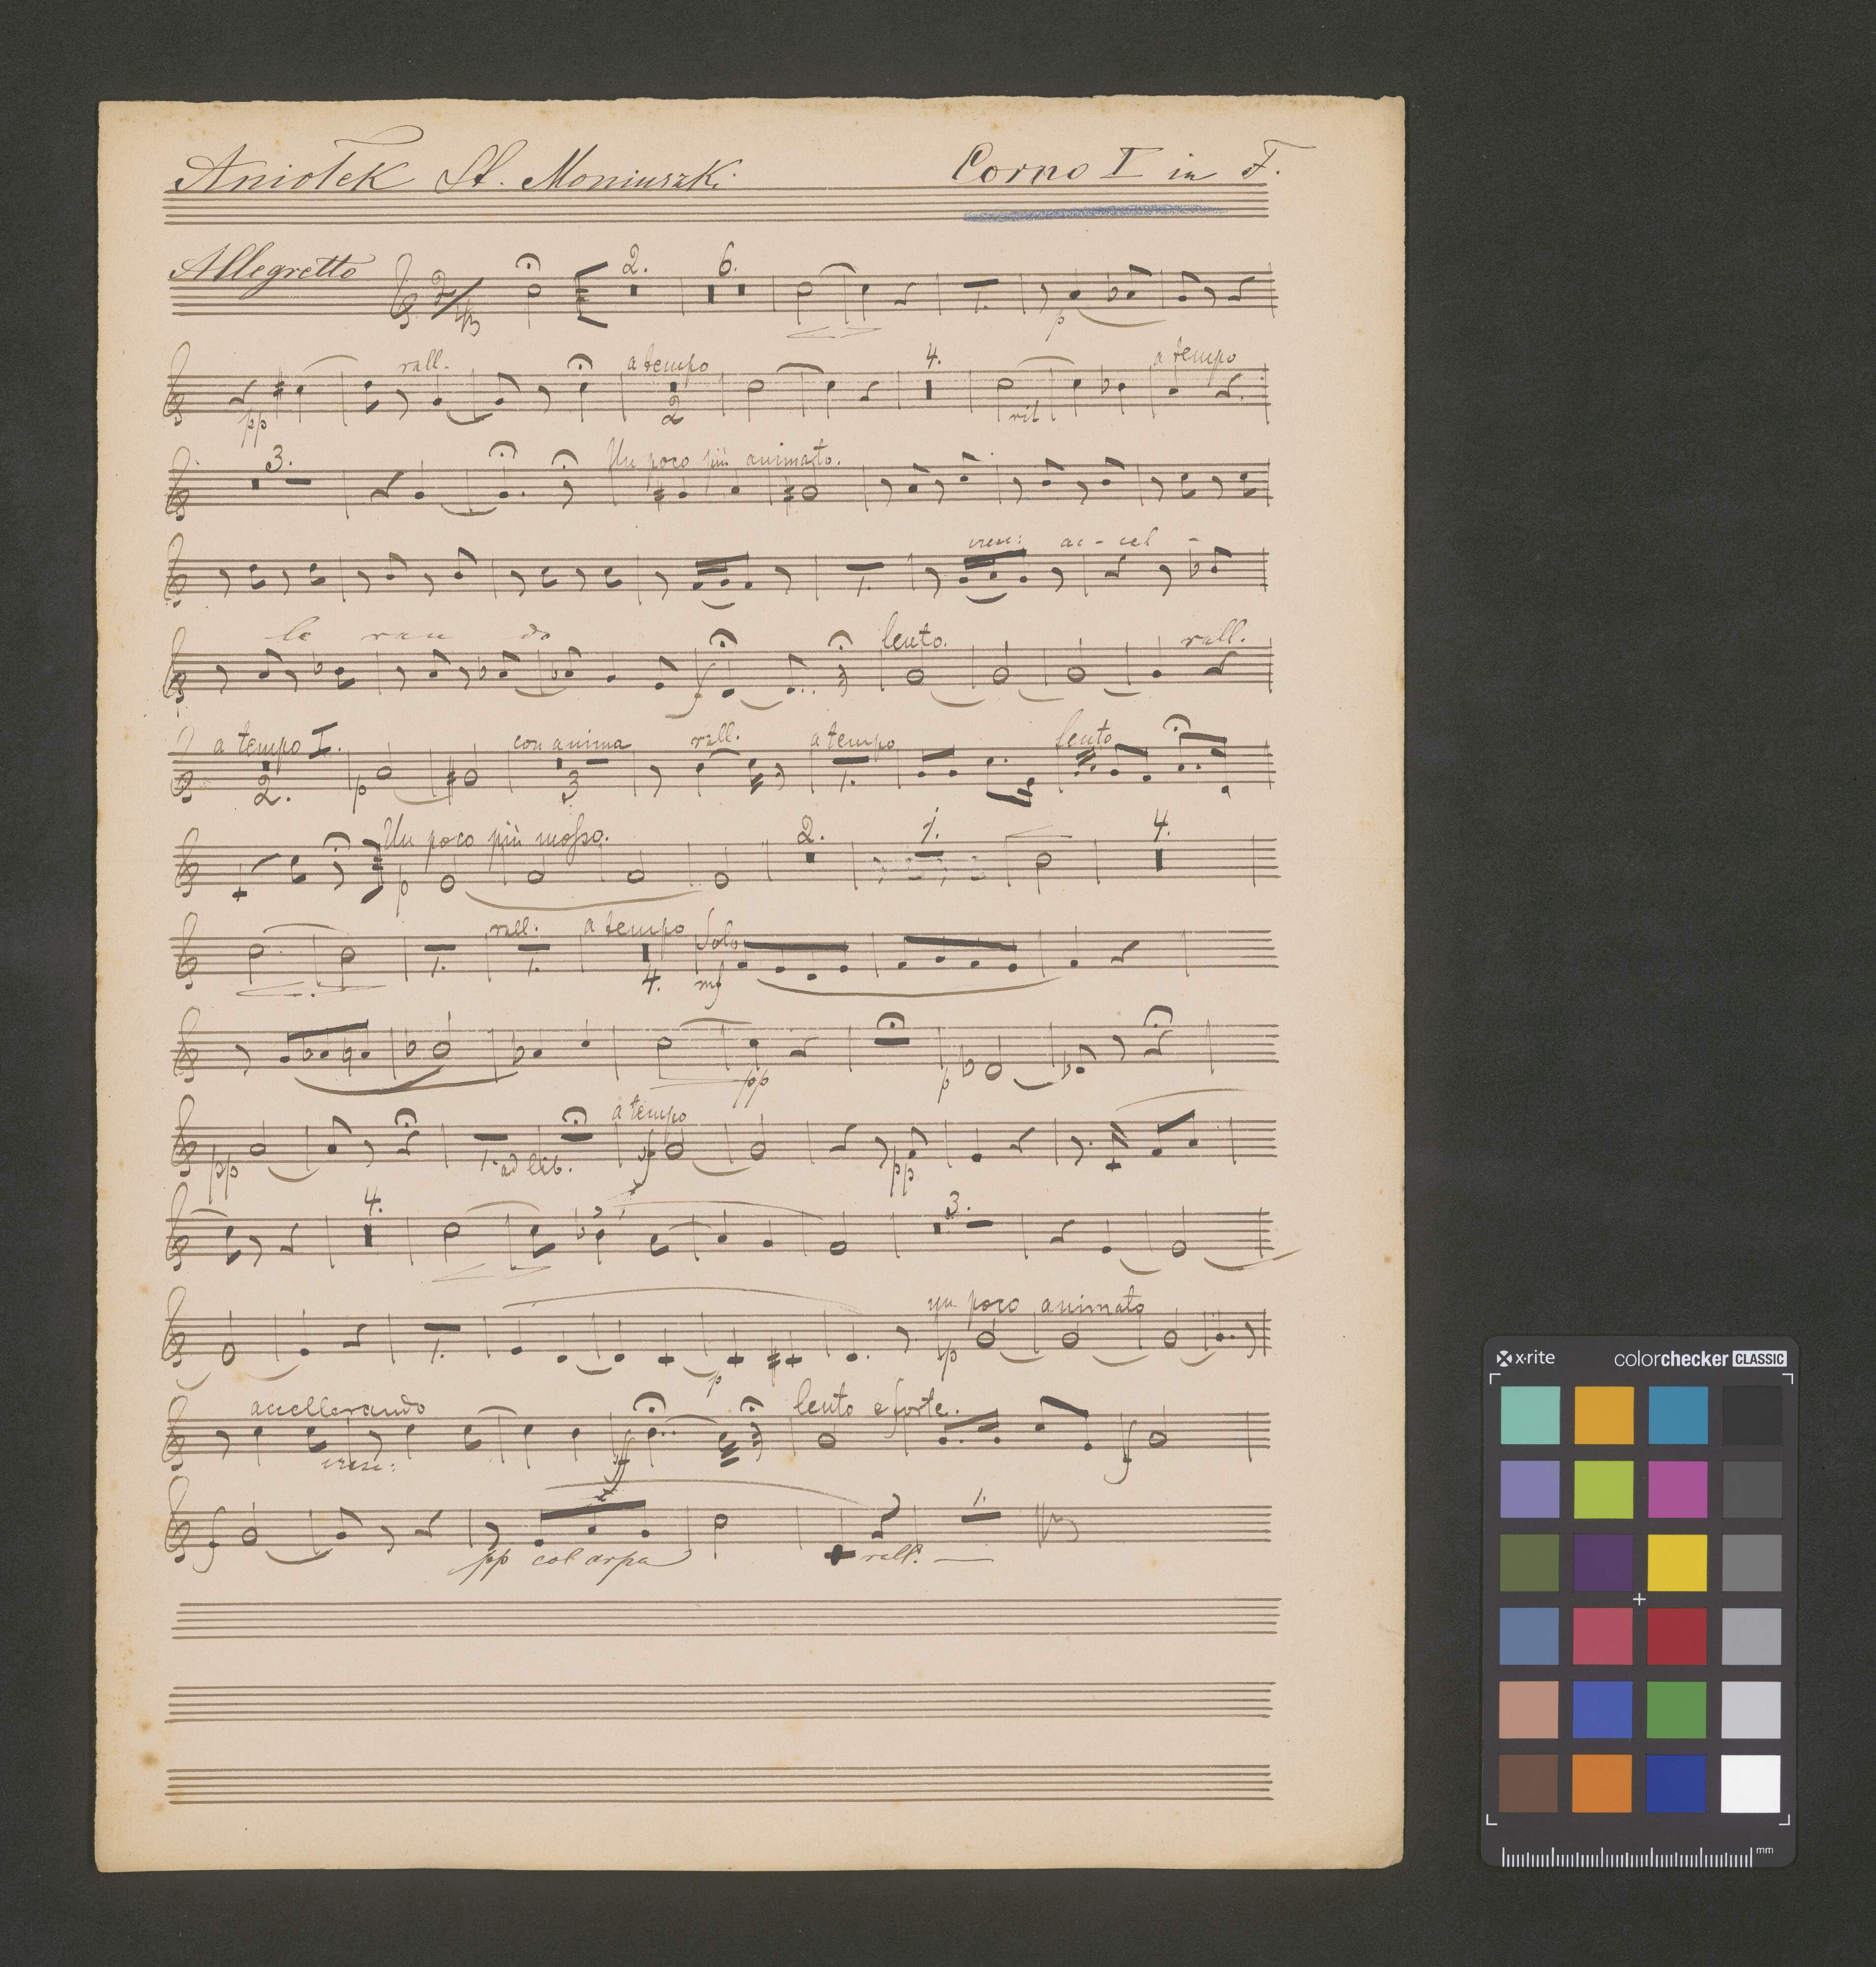 Aniołek St. Moniuszki Corno I in F.
Allegretto 2/4 2. 6. 1. p
pp rall. a tempo 2 4. rit a tempo
3. Un poco più animato.
1. cresc: ac - cel -
le ran do f lento. rall.
a tempo I. 2. p con anima 3 rall. a tempo 1. lento
Un poco più mosso. p 2. 1. 4.
1. rall. 1. a tempo 4. Solo mf
pp p
pp 1. ad lib. a tempo sf pp
4. 3.
1. p un poco animato fp
accellerando cresc: ff lento e forte. f
f pp col arpa rall. 1.
x·rite colorchecker CLASSIC
mm